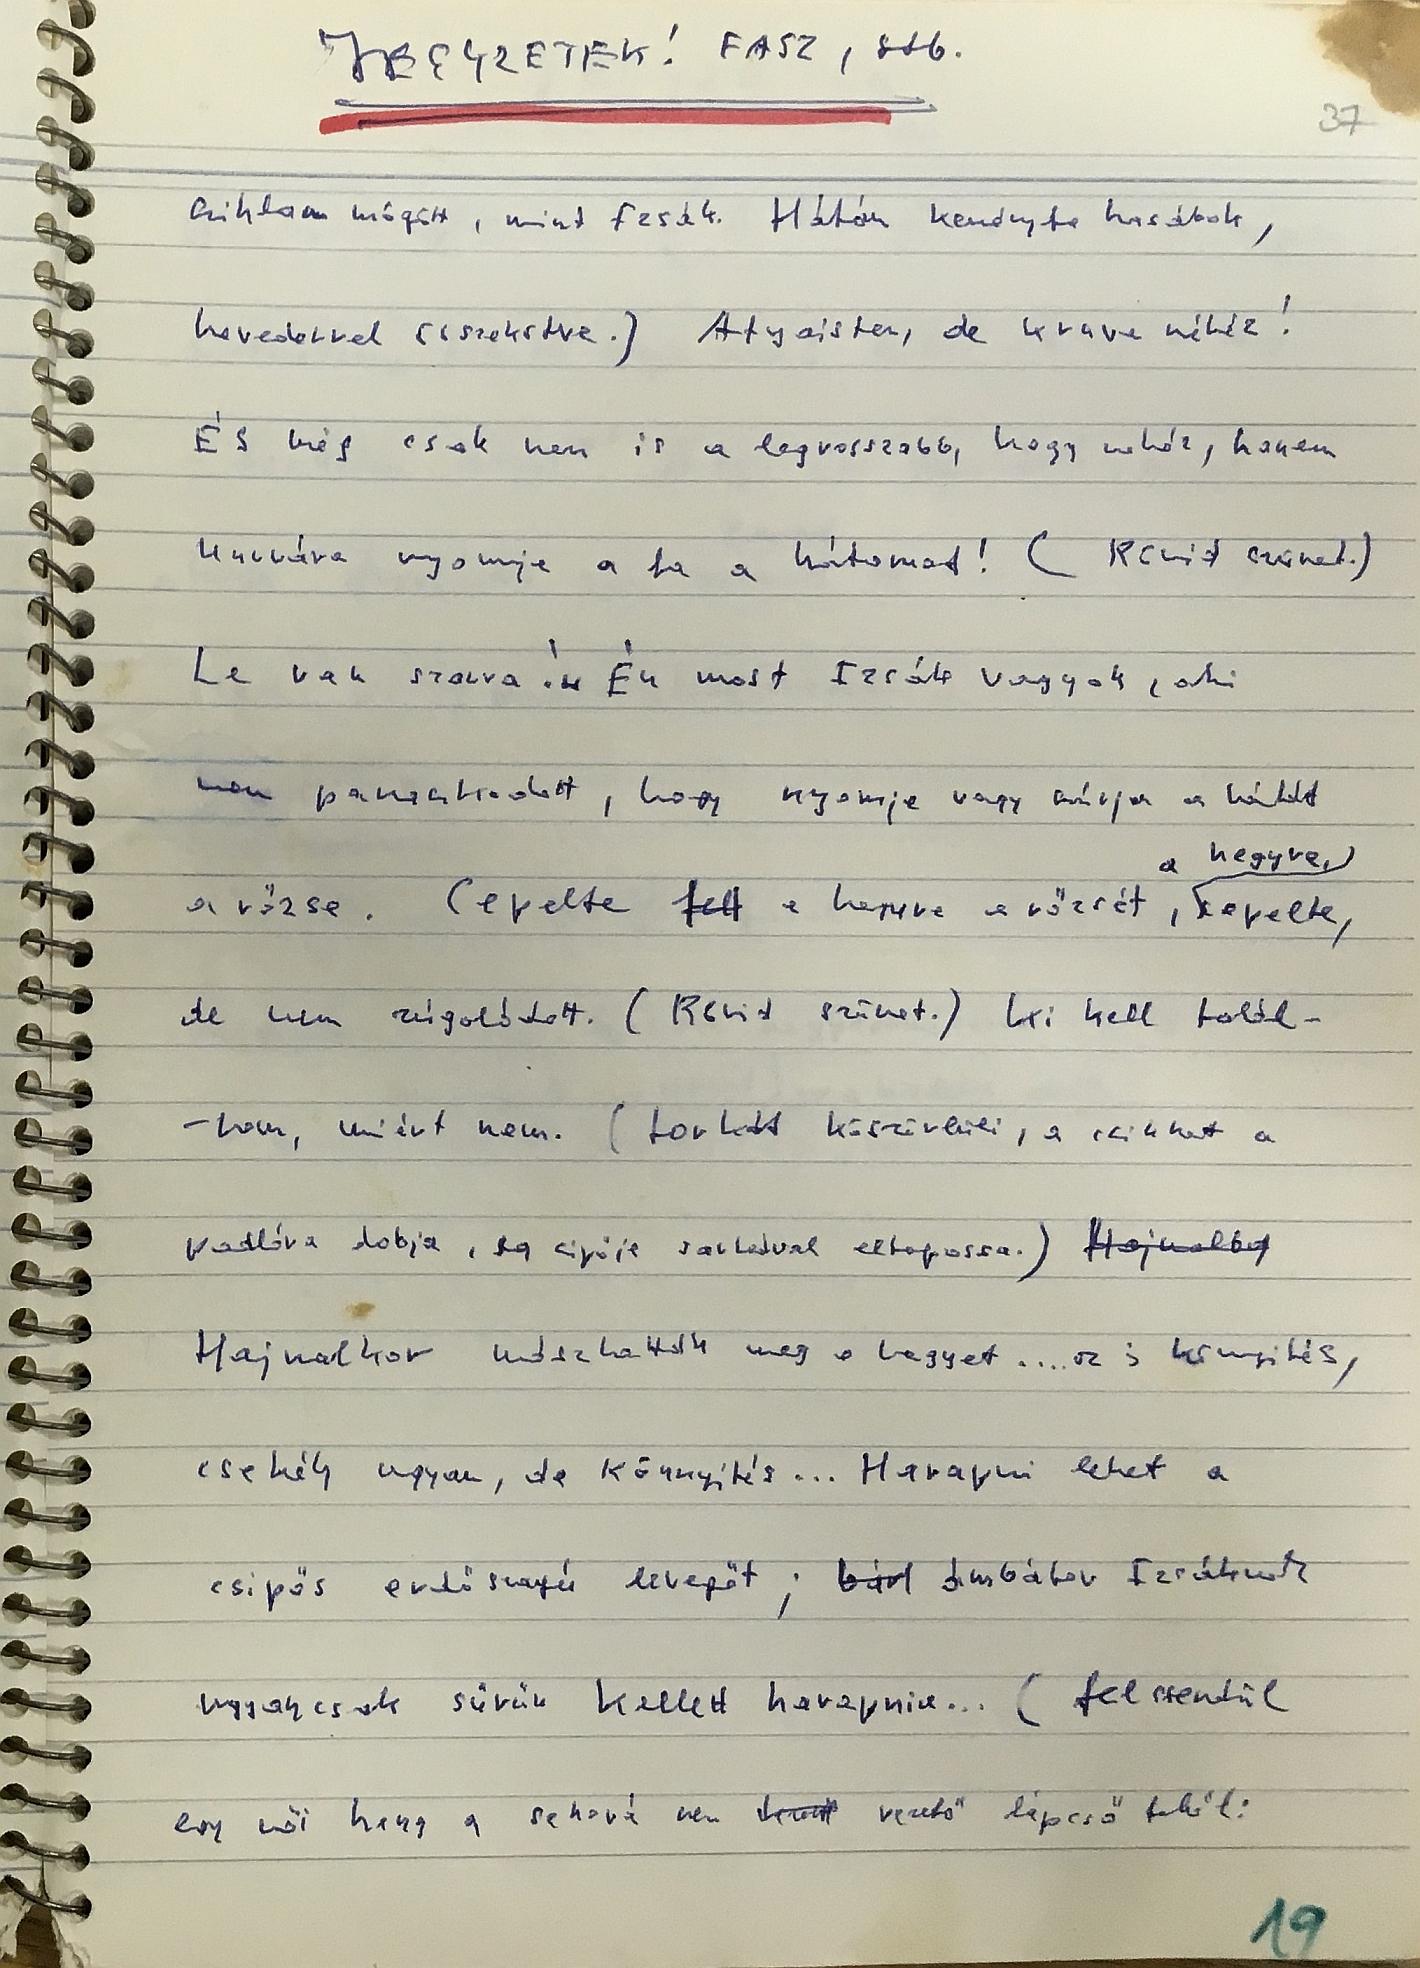 JEGYZETEK! FASZ, stb.
37
sziklám mögött, mint Izsák. Hátán keményfa hasábok,
hevederrel összekötve.) Atyaisten, de kurva nehéz!
És még csak nem is a legrosszabb, hogy nehéz, hanem
kurvára nyomja a fa a hátamat! (Rövid szünet.)
Le van szarva! Én most Izsák vagyok, aki
nem panaszkodott, hogy nyomja vagy szúrja a hátát
a hegyre,)
a rőzse. Cepelte fell a hegyre a rőzsét, cepelte,
de nem zúgolódott. (Rövid szünet.) Ki kell talál-
-nom, miért nem. (torkát köszörüli, a csikket a
padlóra dobja, s a cipője sarkával eltapossa.) Hajnalba
Hajnalkor mászhatták meg a hegyet....ez is könnyítés,
csekély ugyan, de könnyítés... Harapni lehet a
csípős erdőszagú levegőt; bárl ámbátor Izsáknak
ugyancsak sűrűn kellett harapnia... (felcsendül
egy női hang a sehová nem vezető lépcső felől:
19